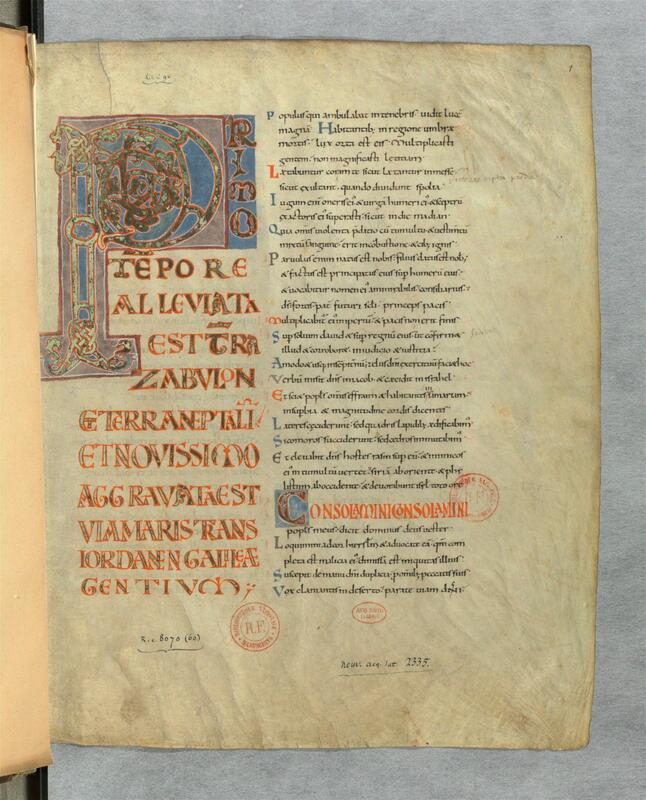 1
PRIMO
TEPORE
ALLEVIATA
EST TRA
ZABVLON
ET TERRA NEPTALI
ET NOVISSIMO
AGGRAVATA EST
VIA MARIS TRANS
IORDANEN GALILEAE
GENTIVM;
Populus qui ambulabat in tenebris uidit lucē
magnā Habitantib; in regione umbrae
mortis lux orta est eis Multiplicasti
gentem non magnificasti letitiam
Laetabuntur coram te sicut laetantur in messe
sicut exultant quando diuidunt spolia
Iugum enim oneris ei & uirgā humeri ei & sceptrū
exactoris ei superasti sicut in die madian
Quia omnis uiolenta p̄dicio cū tumultu & uestimentū
mixtū sanguine erit in cōbustione & cib; ignis
Paruulus enim natus est nobis filius datus est nob;
& factus est principatus eius sup humerū eius
& uocabitur nomen ei ammirabilis consiliarius
ds fortis pat futuri scli princeps pacis
Multiplicabit ei imperiū & pacis non erit finis
Sup solium dauid & sup regnū eius ut cōfirmet
illud & corroboret in iudicio & iustitia
Amodo & usq; in sempiternū zelus dn̄i exercituū faciet hoc
Verbū misit dn̄s in iacob & cecidit in israhel
Et sciet popl's omnis effraim & habitantes samariam
in supbia & magnitudine cordis dicentes
Lateres ceciderunt sed quadris lapidib; aedificabim'
Sicomoros succiderunt sed cedros inmutabim'
Et eleuabit dn̄s hostes rasin sup eū & inimicos
ei in tumultū uertet siriā ab oriente & phi
listiim ab occidente & deuorabunt isrl toto ore
CONSOLAMINI CONSOLAMINI
popl's meus dicit dominus deus uester
Loquimini ad cor hierslm & aduocate eā qm̄ com
pleta est malicia ei dimissa est iniquitas illius
Suscepit de manu dn̄i duplicia p omnib; peccatis suis
Vox clamantis in deserto parate uiam dn̄i
R.F.
R.c. 8070 (60)
Nouv. acq. lat. 2335.